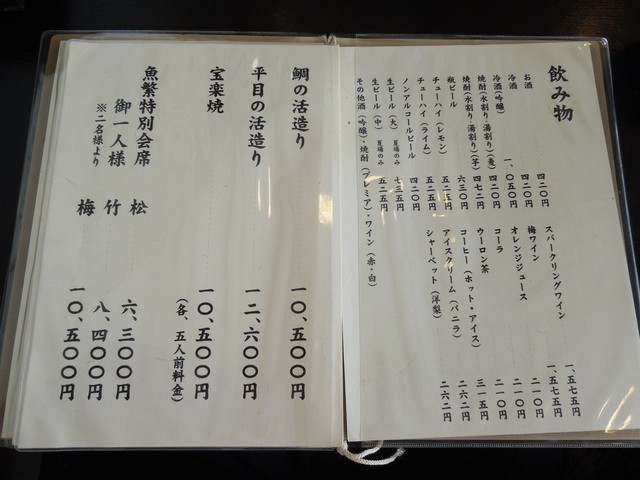 飲み物
お酒 四二〇円
冷酒 四二〇円
冷酒(吟醸) 一、〇五〇円
焼酎(水割り・湯割り)(麦) 四二〇円
焼酎(水割り・湯割り)(芋) 四七二円
瓶ビール 六三〇円
チューハイ(レモン) 五二五円
チューハイ(ライム) 五二五円
ノンアルコールビール 四二〇円
生ビール(大) 夏場のみ 七三五円
生ビール(中) 夏場のみ 五二五円
その他酒(吟醸)・焼酎(プレミア)・ワイン(赤・白)
スパークリングワイン 一、五七五円
梅ワイン 一、五七五円
オレンジジュース 二一〇円
コーラ 二一〇円
ウーロン茶 二一〇円
コーヒー(ホット・アイス) 三一五円
アイスクリーム(バニラ) 二六二円
シャーベット(洋梨) 二六二円
鯛の活造り 一〇、五〇〇円
平目の活造り 一二、六〇〇円
宝楽焼 一〇、五〇〇円
(各、五人前料金)
魚繁特別会席
御一人様
※二名様より
松 六、三〇〇円
竹 八、四〇〇円
梅 一〇、五〇〇円